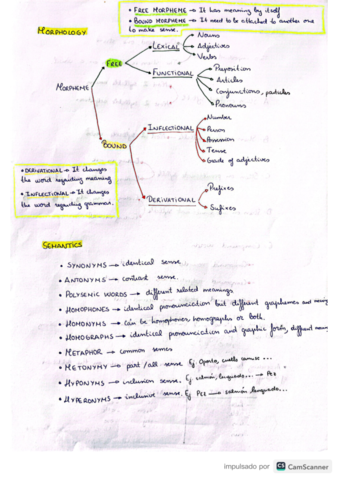 • FREE MORPHEME → It has meaning by itself
• BOUND MORPHEME → It need to be attached to another one
to make sense.
MORPHOLOGY
MORPHEME
FREE
LEXICAL
Nouns
Adjectives
Verbs
FUNCTIONAL
Preposition
Articles
Conjunctions, particles
Pronouns
BOUND
INFLECTIONAL
Number
Person
Possession
Tense
Grade of adjectives
DERIVATIONAL
Prefixes
Sufixes
• DERIVATIONAL → It changes
the word regarding meaning
• INFLECTIONAL → It changes
the word regarding grammar.
SEMANTICS
• SYNONYMS → identical sense
• ANTONYMS → contrast sense.
• POLYSEMIC WORDS → different related meanings
• HOMOPHONES → identical pronounciation but different graphemes and
• HOMONYMS → can be homophones, homographs or both.
• HOMOGRAPHS → identical pronounciation and graphic form, different
• METAPHOR → common semes
• METONYMY → part/all sense Ej
• HYPONYMS → inclusion sense. Ej salmón, lenguado... → Pez
• HYPERONYMS → inclusive sense. Ej Pez → salmón, lenguado...
impulsado por CS CamScanner